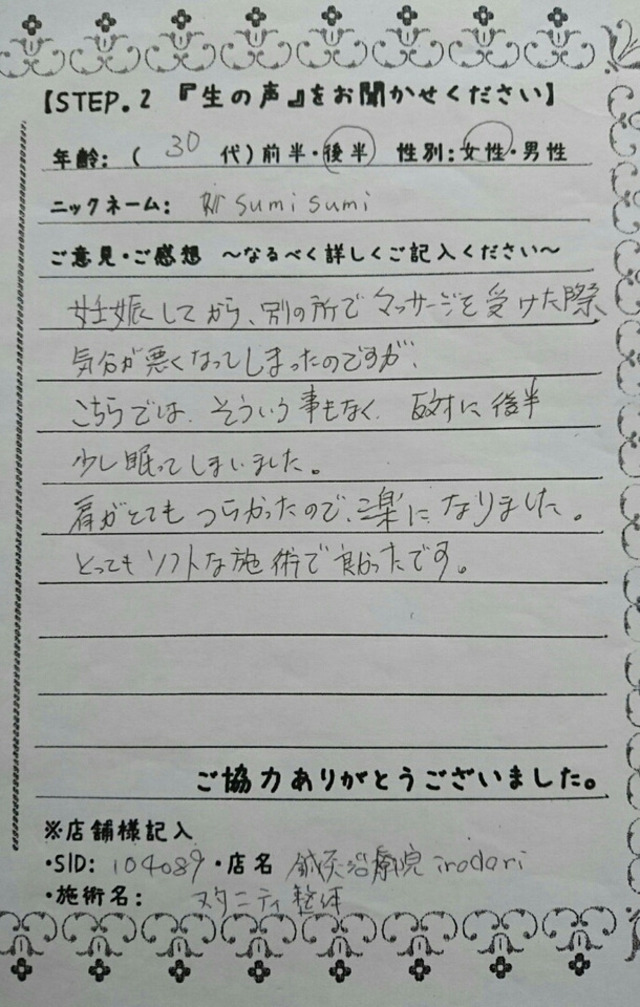 【STEP.2 『生の声』をお聞かせください】
年齢:( 30 代)前半・後半 性別:女性・男性
ニックネーム: sumi sumi
ご意見・ご感想 ～なるべく詳しくご記入ください～
妊娠してから、別の所でマッサージを受けた際
気分が悪くなってしまったのですが、
こちらでは、そういう事もなく、反対に後半
少し眠ってしまいました。
肩がとてもつらかったので、楽になりました。
とってもソフトな施術で良かったです。
ご協力ありがとうございました。
※店舗様記入
・SID: 104089 ・店名 鍼灸治療院 irodori
・施術名: マタニティ整体